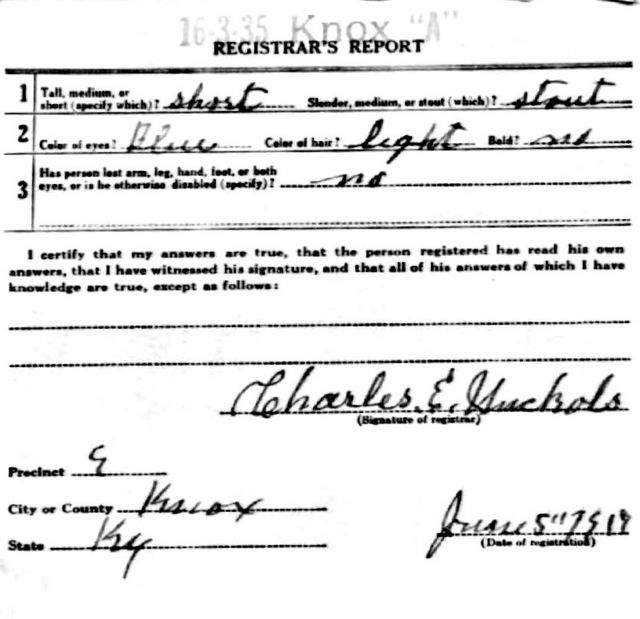 16-3-35 Knox "A"
REGISTRAR'S REPORT
1 Tall, medium, or short (specify which)? short Slender, medium, or stout (which)? stout
2 Color of eyes? Blue Color of hair? light Bald? no
3 Has person lost arm, leg, hand, foot, or both eyes, or is he otherwise disabled (specify)? no
I certify that my answers are true, that the person registered has read his own
answers, that I have witnessed his signature, and that all of his answers of which I have
knowledge are true, except as follows:
Charles. E. Nuckols
(Signature of registrar)
Precinct E
City or County Knox
State Ky
June 5" 1917
(Date of registration)